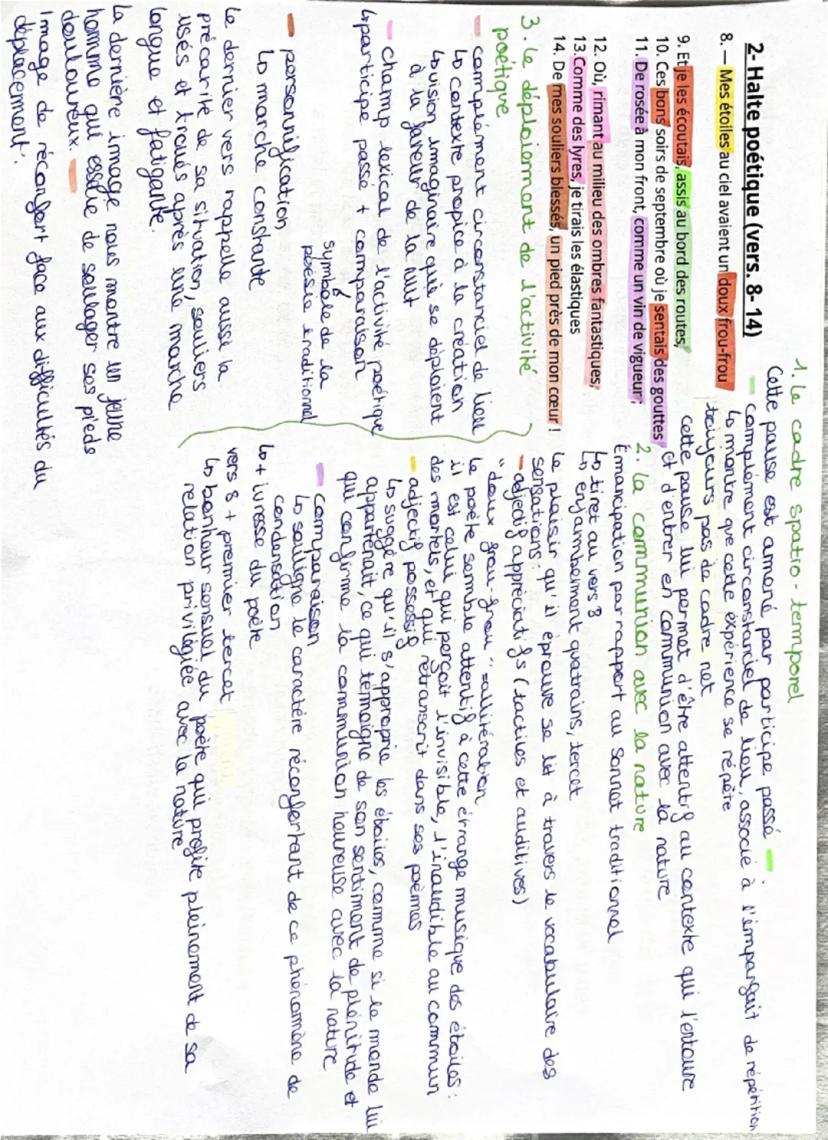 2- Halte poétique (vers. 8- 14)
8. — Mes étoiles au ciel avaient un doux frou-frou
9. Et je les écoutais, assis au bord des routes,
10. Ces bons soirs de septembre où je sentais des gouttes
11. De rosée à mon front, comme un vin de vigueur ;
12. Où, rimant au milieu des ombres fantastiques,
13. Comme des lyres, je tirais les élastiques
14. De mes souliers blessés, un pied près de mon cœur !
1. Le cadre spatio-temporel
Cette pause est amené par participe passé
complément circonstanciel de lieu, associé à l'imparfait de répétition
↳ montre que cette expérience se répète
toujours pas de cadre net
cette pause lui permet d'être attentif au contexte qui l'entoure
et d'entrer en communion avec la nature
2. La communion avec la nature
Émancipation par rapport au sonnet traditionnel
↳ tiret au vers 8
↳ enjambement quatrains, tercet
Le plaisir qu'il éprouve se lit à travers le vocabulaire des
sensations :
- adjectif appréciatifs (tactiles et auditives)
"doux frou-frou" = allitération
le poète semble attentif à cette étrange musique des étoiles :
il est celui qui perçoit l'invisible, l'inaudible au commun
des mortels, et qui retranscrit dans ses poèmes
- adjectif possessif
↳ suggère qu'il s'approprie les étoiles, comme si le monde lui
appartenait, ce qui témoigne de son sentiment de plénitude et
qui confirme la communion heureuse avec la nature
- comparaison
↳ souligne le caractère réconfortant de ce phénomène de
condensation
↳ + ivresse du poète
vers 8 + premier tercet
↳ bonheur sensuel du poète qui profite pleinement de sa
relation privilégiée avec la nature
3. Le déploiement de l'activité
poétique
- complément circonstanciel de lieu
↳ contexte propice à la création
↳ vision imaginaire qui se déploient
à la faveur de la nuit
- champ lexical de l'activité poétique
↳ participe passe + comparaison
symbole de la
poésie traditionnel
- personnification
↳ marche constante
Le dernier vers rappelle aussi la
précarité de sa situation, souliers
usés et troués après une marche
longue et fatigante.
La dernière image nous montre un jeune
homme qui essaie de soulager ses pieds
douloureux.
Image de réconfort face aux difficultés du
déplacement.